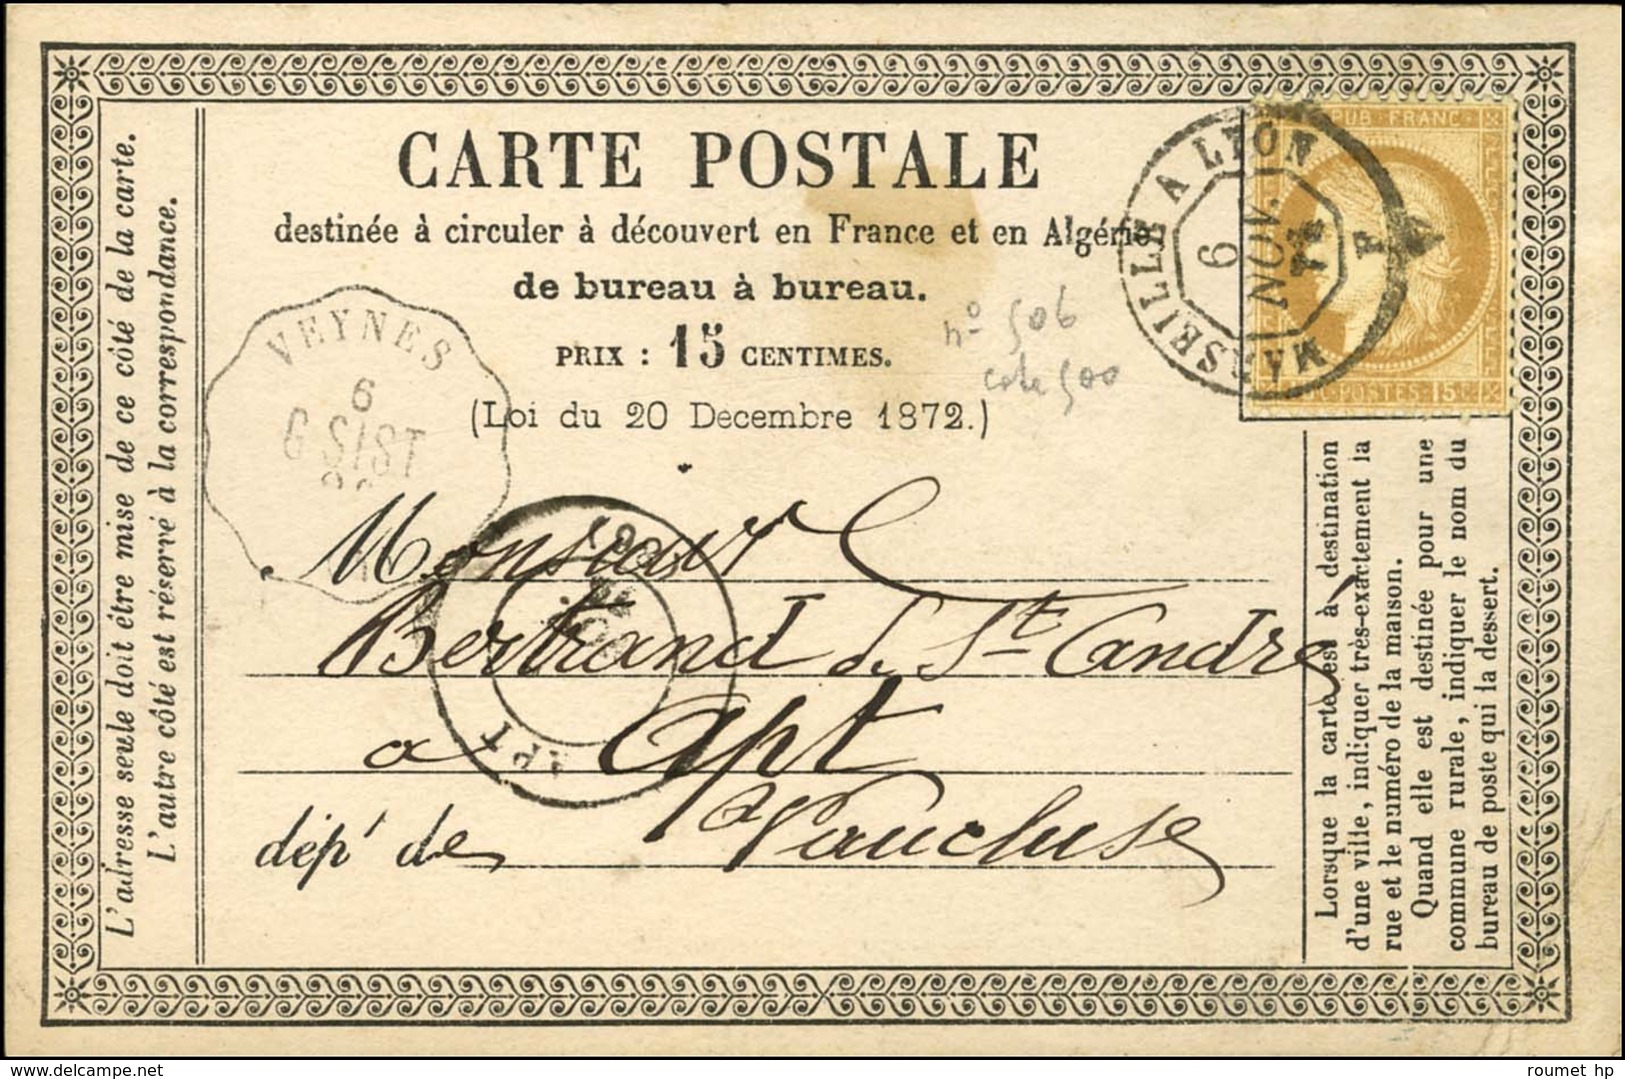 CARTE POSTALE
destinée à circuler à découvert en France et en Algérie
de bureau à bureau.
PRIX : 15 CENTIMES.
(Loi du 20 Decembre 1872.)
nº 506
cote 500
MARSEILLE A LYON
6
NOV.
74
REPUB · FRANC
POSTES · 15 C
VEYNES
6
G SIST
Monsieur
Bertrand de St. André
à Apt
dép' de Vaucluse
APT
L'adresse seule doit être mise de ce côté de la carte.
L'autre côté est réservé à la correspondance.
Lorsque la carte est à destination
d'une ville, indiquer très-exactement la
rue et le numéro de la maison.
Quand elle est destinée pour une
commune rurale, indiquer le nom du
bureau de poste qui la dessert.
www.delcampe.net
roumet_hp